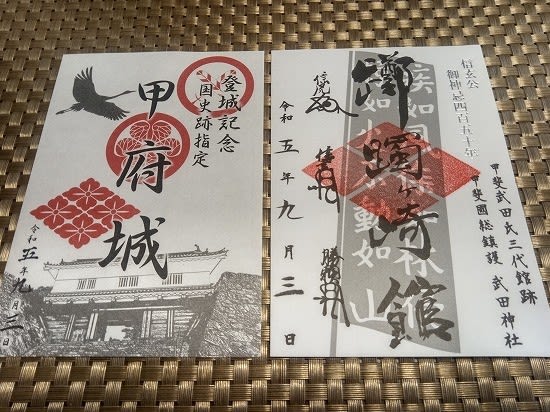 登城記念
国史跡指定
甲府城
令和五年九月三日
信玄公
御神忌四百五十年
甲斐武田氏三代館跡
甲斐國総鎮護 武田神社
躑躅ヶ崎館
信虎
信玄
勝頼
令和五年九月三日